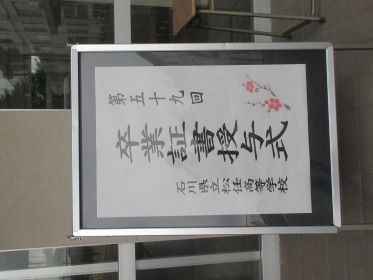 第五十九回
卒業証書授与式
石川県立松任高等学校